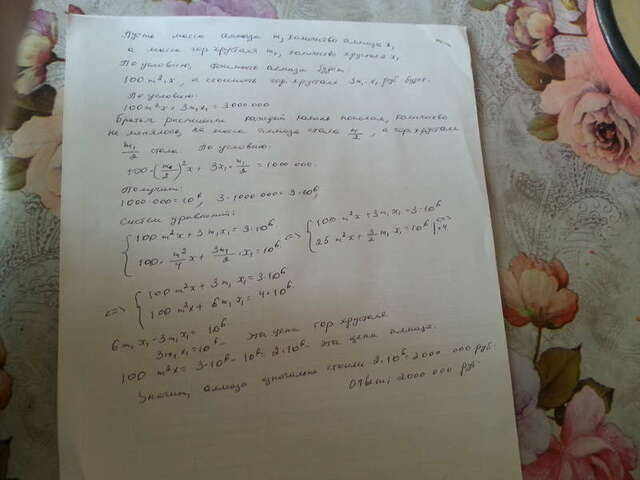 Пусть масса алмаза m, количество алмаза x,
а масса гор. хрусталя m₁, количество хрусталя x₁
По условию, стоимость алмаза будет
100 m²·x, а стоимость гор. хрусталя 3m₁·x₁ руб будет.
По условию:
100m²x + 3m₁x₁ = 3000 000
Братья распилили каждый камень пополам, количество
не менялось, масса алмаза стала m/2, а гор. хрусталя
m₁/2 стала По условию:
100·(m/2)²x + 3x₁·m₁/2 = 1000 000.
Получим:
1000 000 = 10⁶, 3·1000 000 = 3·10⁶,
Систем уравнений:
{100 m²x + 3m₁x₁ = 3·10⁶ <=> {100 m²x + 3m₁x₁ = 3·10⁶ <=>
{100·m²/4 x + 3m₁/2·x₁ = 10⁶ {25 m²x + 3/2 m₁x₁ = 10⁶ |·4
<=> {100 m²x + 3m₁x₁ = 3·10⁶
{100 m²x + 6m₁x₁ = 4·10⁶
6m₁x₁ - 3m₁x₁ = 10⁶
3m₁x₁ = 10⁶ - эта цена гор. хрусталя
100 m²x = 3·10⁶ - 10⁶ = 2·10⁶ - эта цена алмаза.
Значит, алмаза изначально стоили 2·10⁶ = 2000 000 руб.
Ответ: 2000 000 руб.